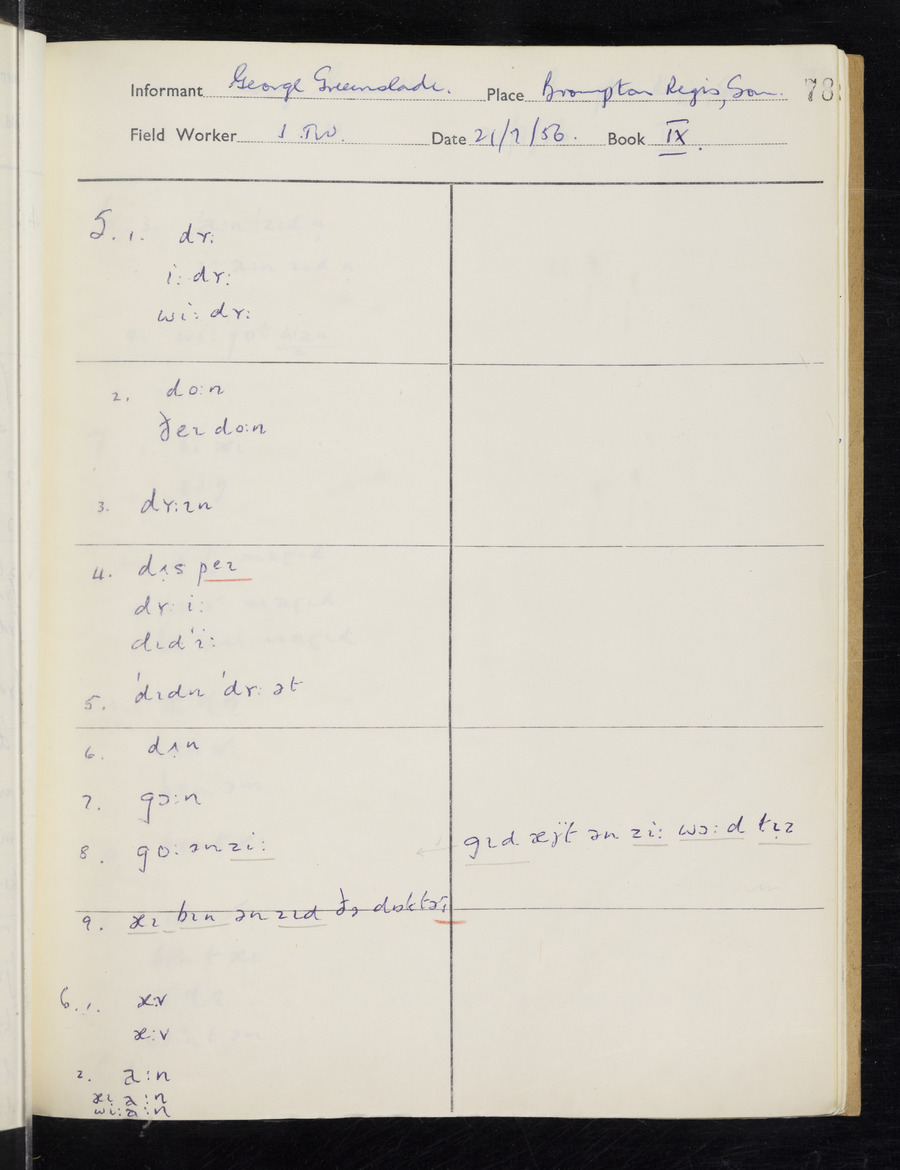 Informant George Greenslade. Place Brompton Regis, Som. 78
Field Worker Date 21/7/56. Book IX.
5. 1. dʏ:
i: dʏ:
wi: dʏ:
2. do:n
ðeɪ do:n
3. dʏ:ən
4. dʌs peɪ
dʏ: i:
dɪd i:
5. ˈdɪdn ˈdʏ: ət
6. dʌn
7. gɔ:n
8. go: ən zi: gɪd ən zi: wɔ:d
9. æɪ bɪn ən zɪd ðə
6. 1. æ:v
æ:v
2. a:n
æɪ a:n
wi: a:n